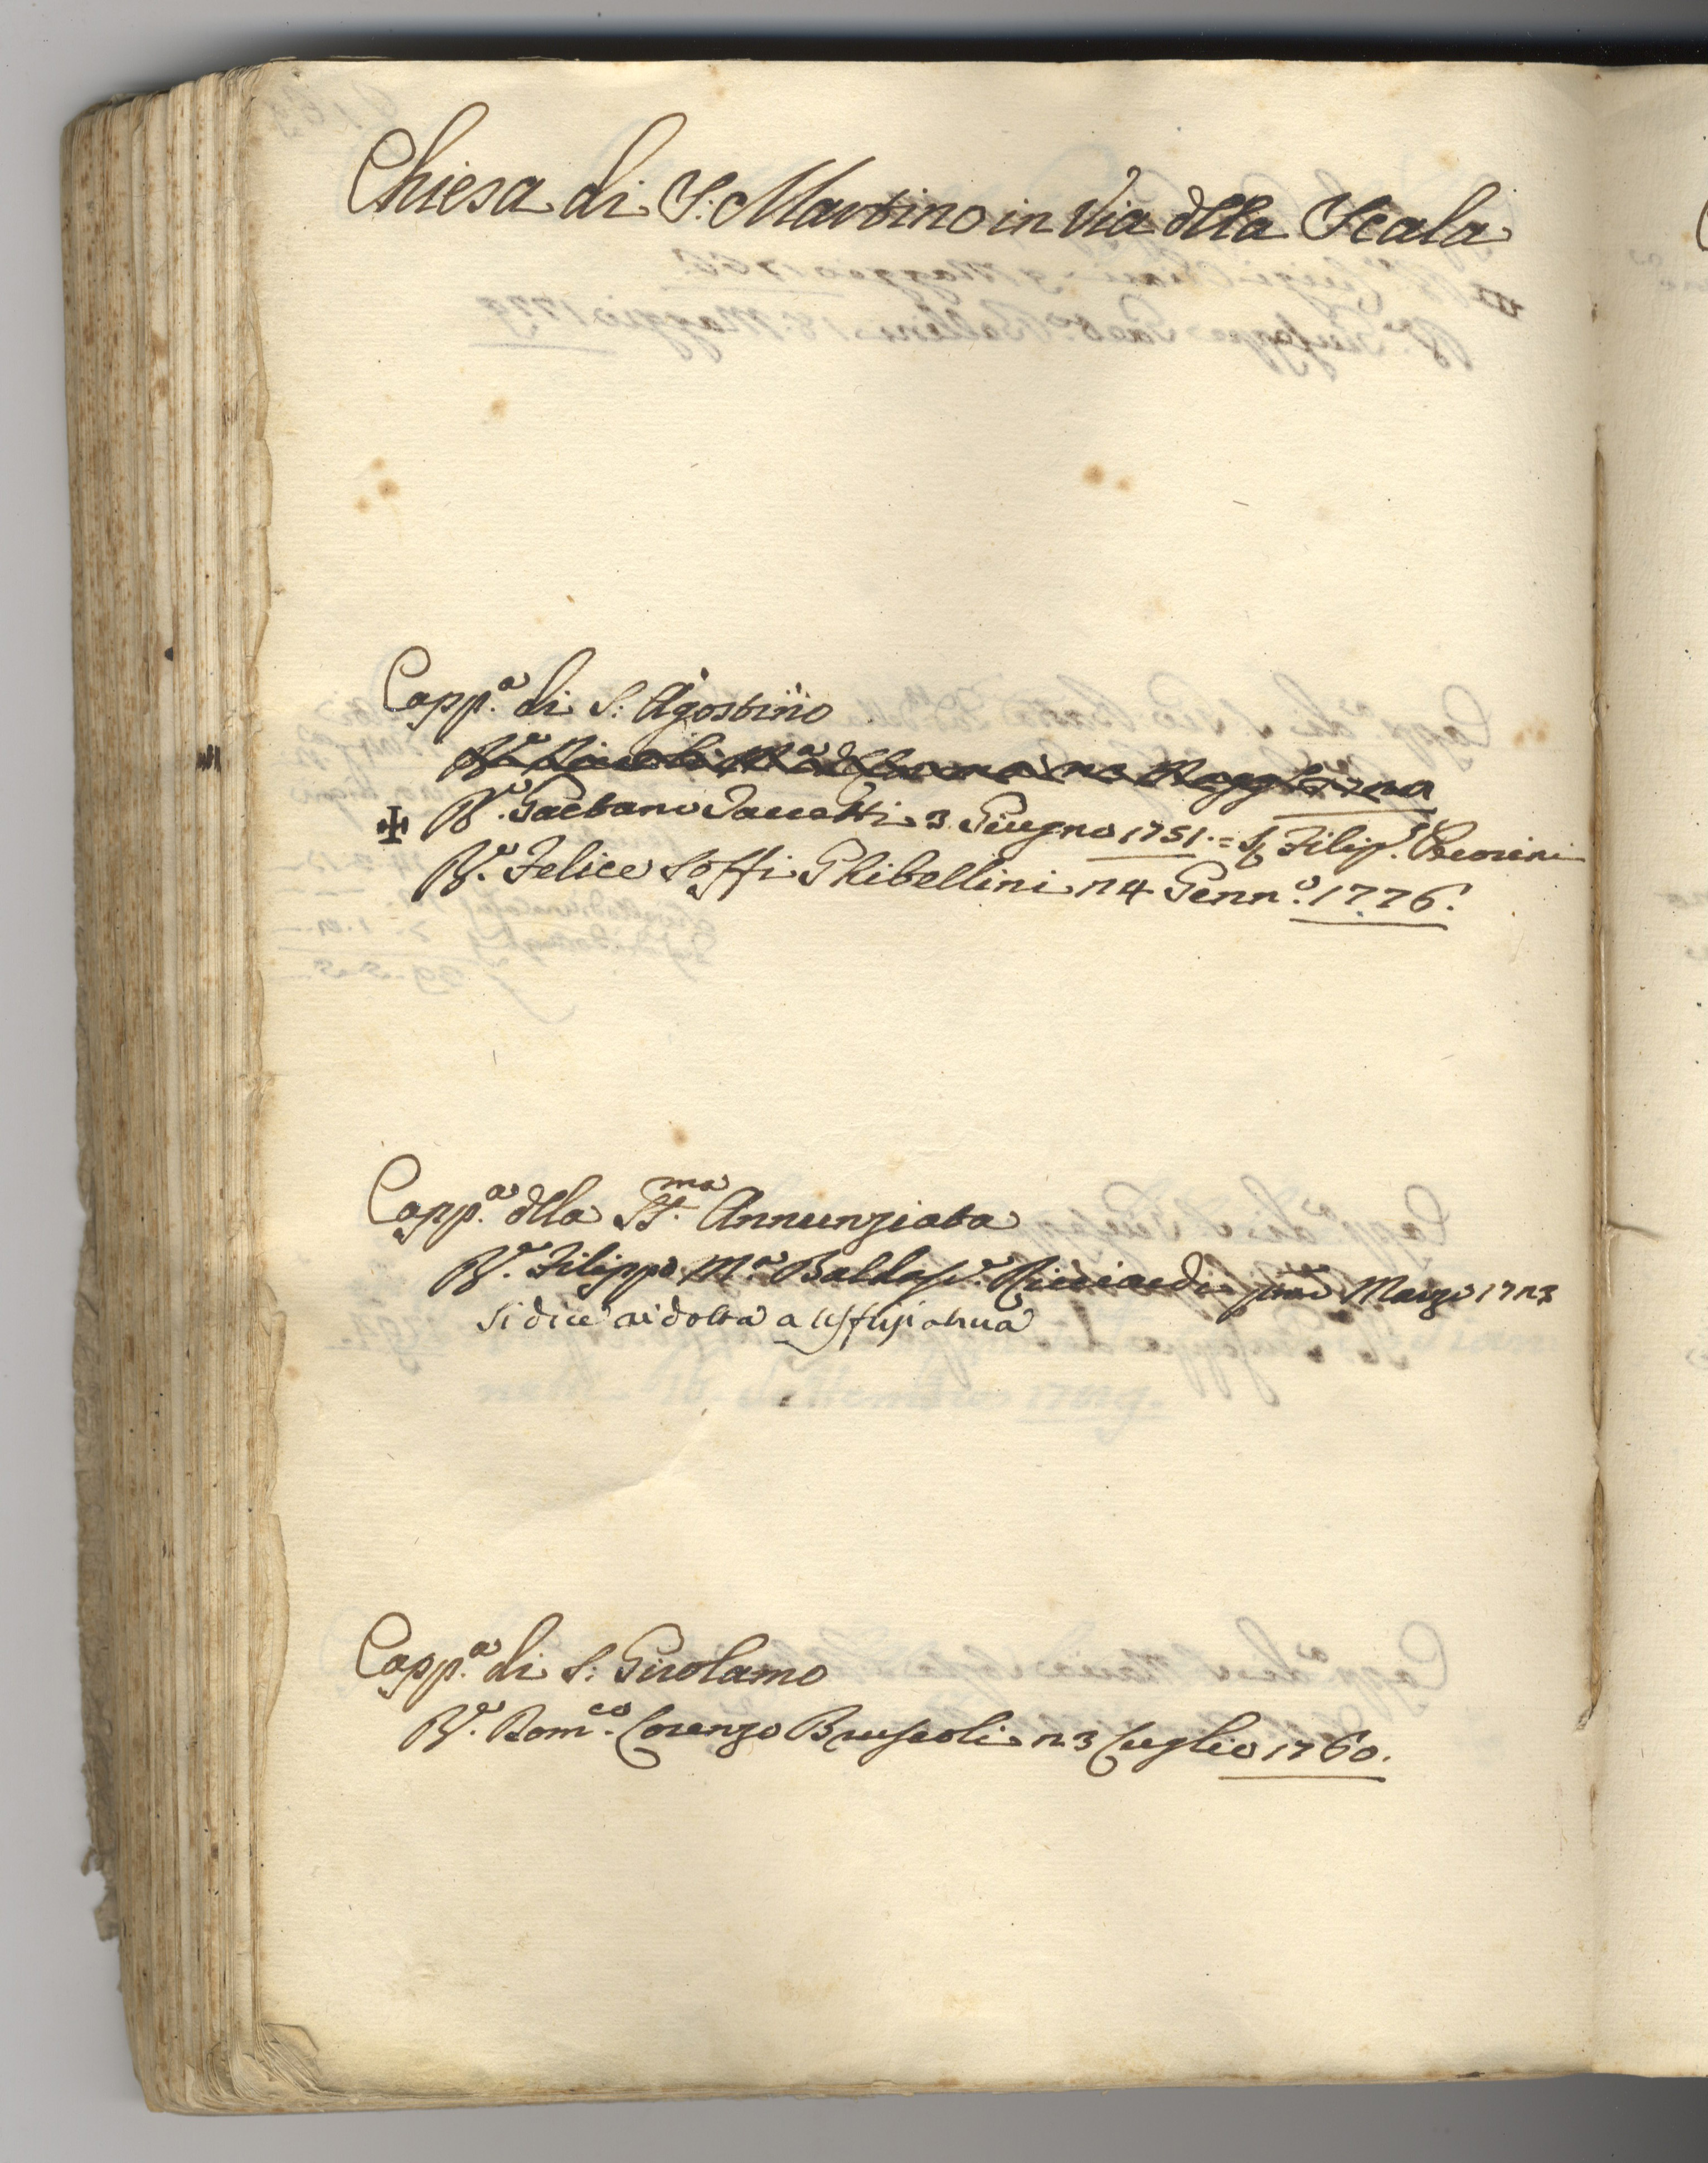 Chiesa di S: Martino in Via della Scala
Capp.ª di S: Agostino
P.e Gaetano Saccetti 3 Giugno 1751. = Filip.
P.e Felice Soffi Ghibellini 24 Genn.o 1776.
Capp.ª della SS.ma Annunziata
P.e Filippo M.ª Baldas.e Ricciardi p.mo Marzo 1723
si dice ridotta a uffiziatura
Capp.ª di S: Girolamo
P.e Dom.co Lorenzo Bruscoli 23 Luglio 1760.